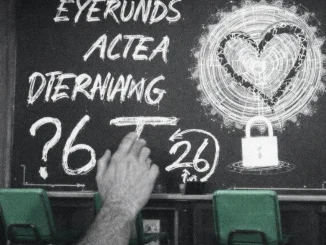 EYERUNDS
ACTEA
DTERNIAWG
?6 T 26